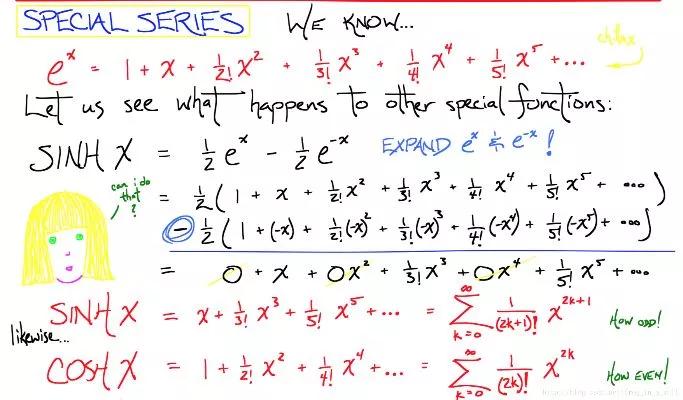 SPECIAL SERIES
WE KNOW...
e^x = 1 + x + 1/2! x^2 + 1/3! x^3 + 1/4! x^4 + 1/5! x^5 + ...
Let us see what happens to other special functions:
SINH X = 1/2 e^x - 1/2 e^-x EXPAND e^x & e^-x !
can i do that?
= 1/2 ( 1 + x + 1/2! x^2 + 1/3! x^3 + 1/4! x^4 + 1/5! x^5 + ... )
- 1/2 ( 1 + (-x) + 1/2! (-x)^2 + 1/3! (-x)^3 + 1/4! (-x^4) + 1/5! (-x^5) + ... )
= 0 + x + 0x^2 + 1/3! x^3 + 0x^4 + 1/5! x^5 + ...
SINH X = x + 1/3! x^3 + 1/5! x^5 + ... = ∑_{k=0}^{∞} 1/(2k+1)! x^{2k+1} HOW ODD!
likewise...
COSH X = 1 + 1/2! x^2 + 1/4! x^4 + ... = ∑_{k=0}^{∞} 1/(2k)! x^{2k} HOW EVEN!